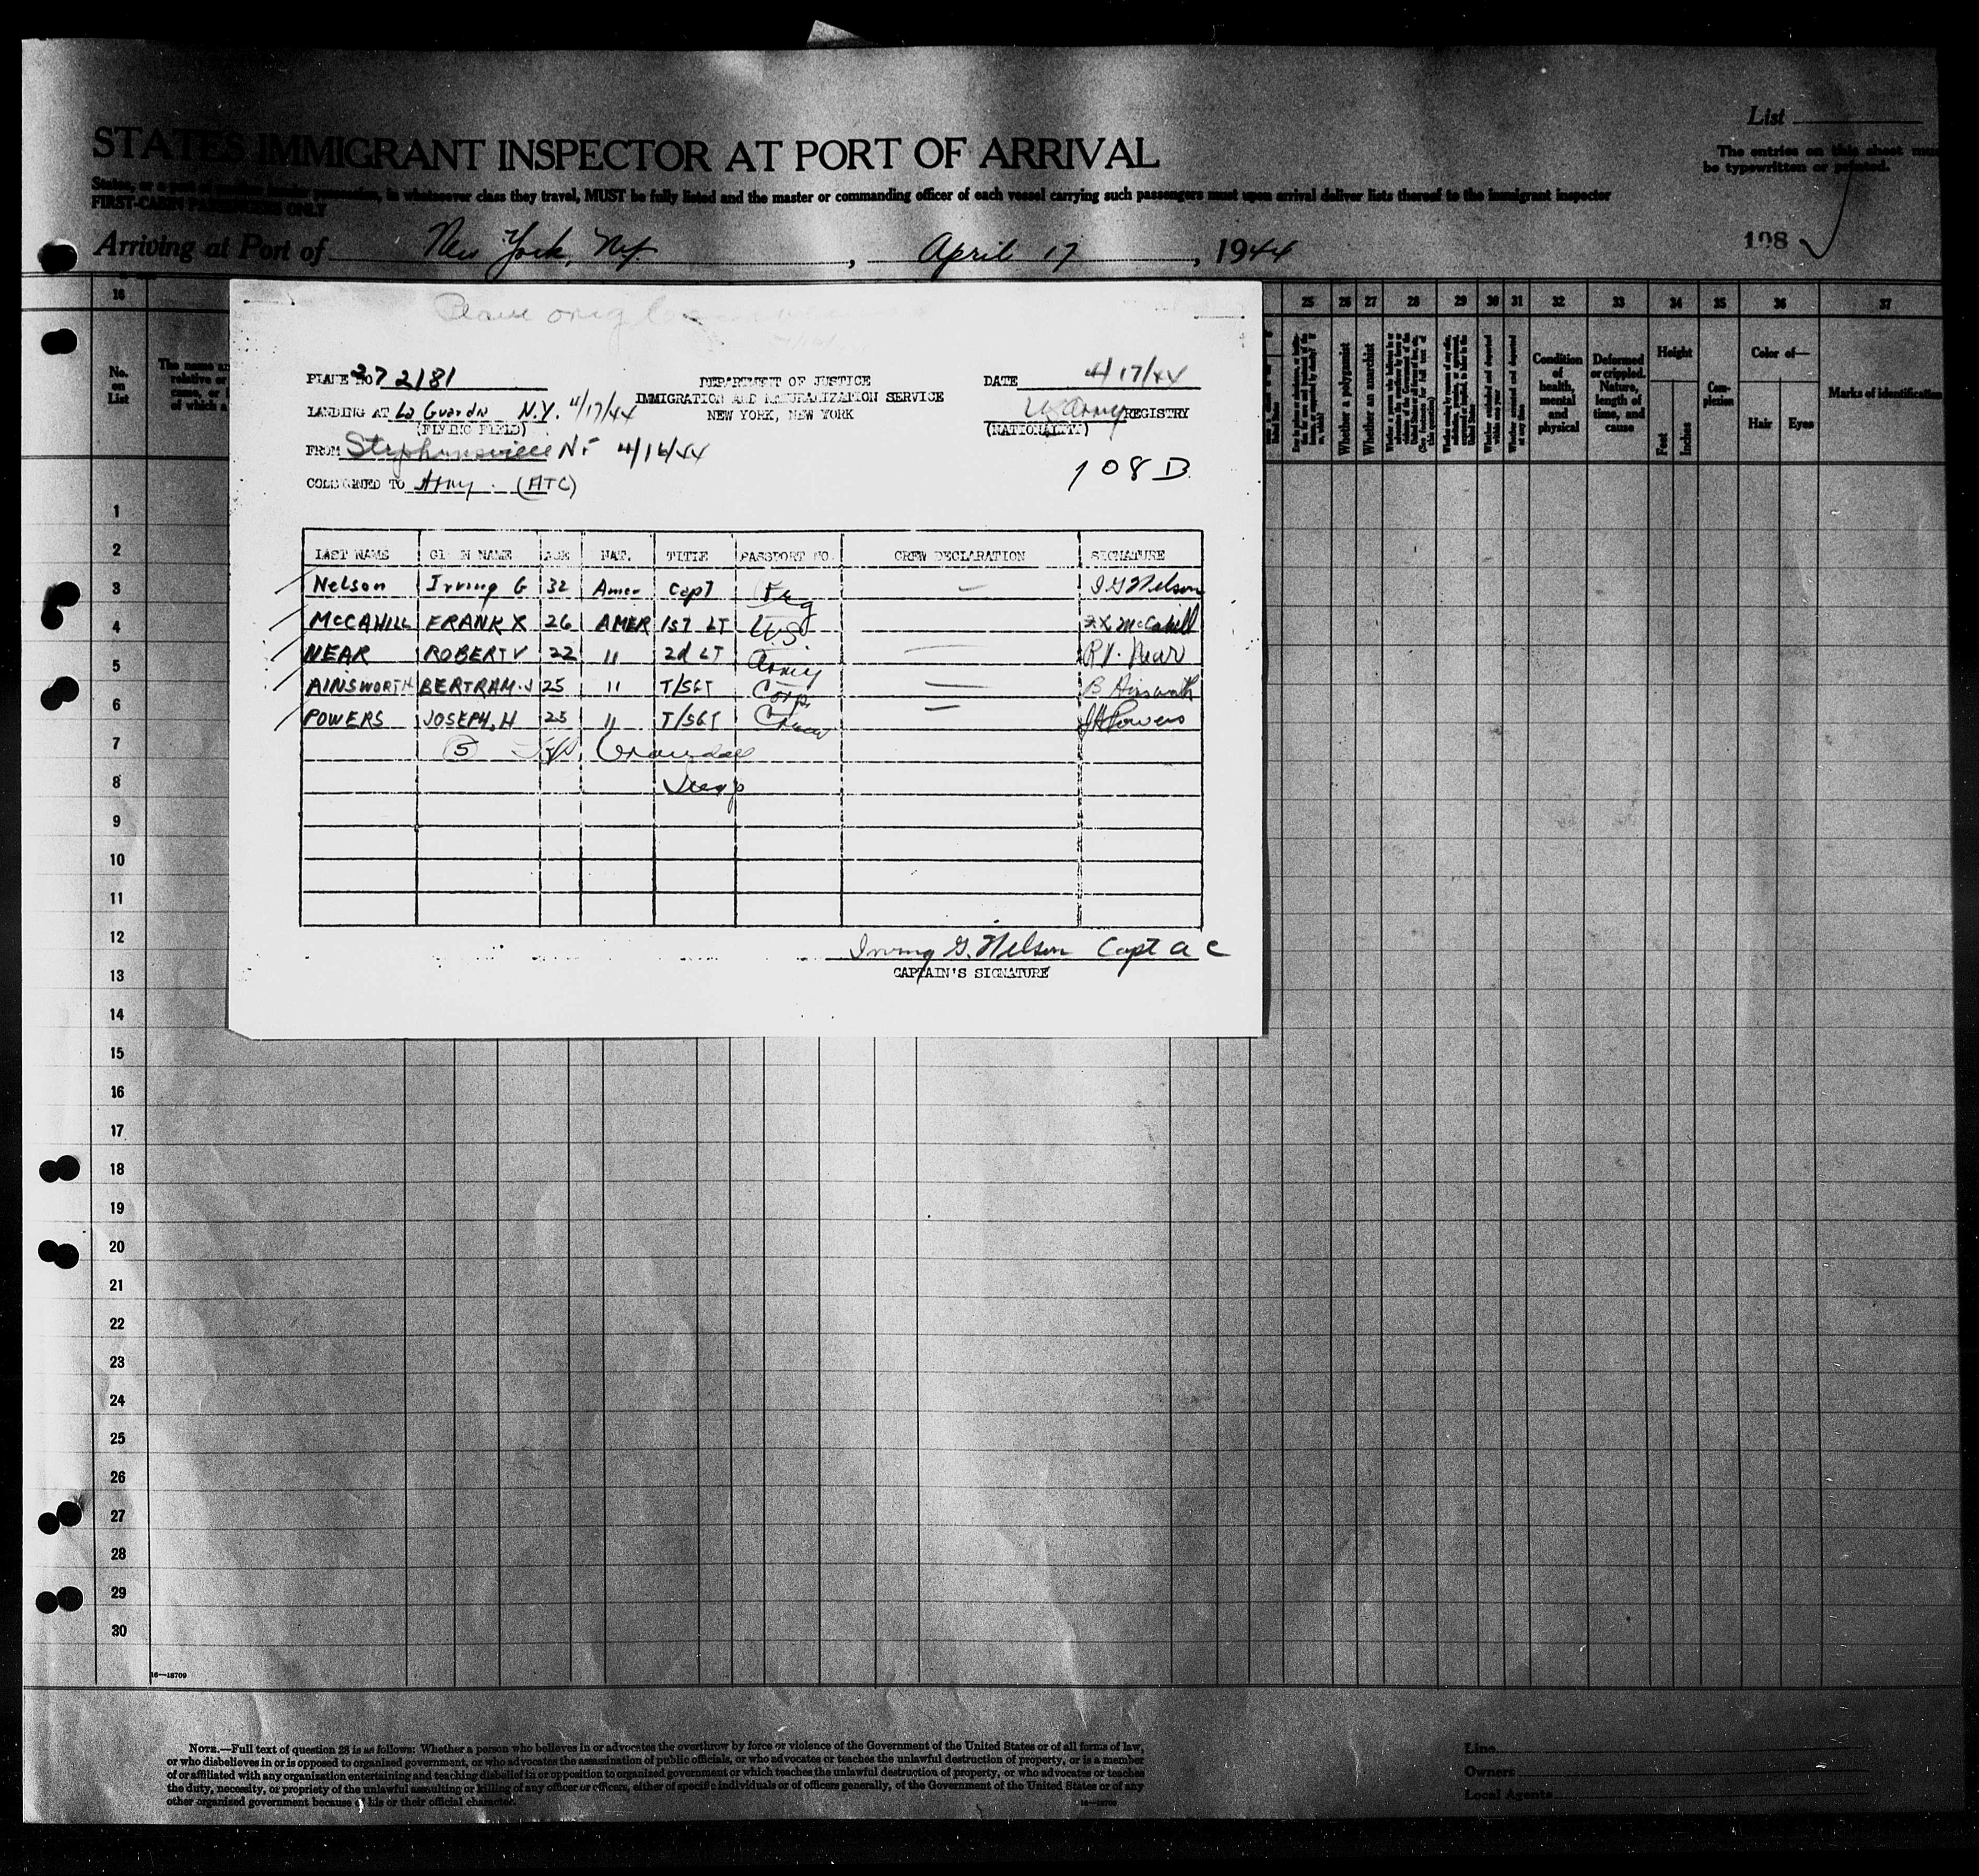 List
STATES IMMIGRANT INSPECTOR AT PORT OF ARRIVAL
The entries on this sheet must
be typewritten or printed.
States, or a part of another insular possession, in whatsoever class they travel, MUST be fully listed and the master or commanding officer of each vessel carrying such passengers must upon arrival deliver lists thereof to the immigrant inspector
FIRST-CABIN PASSENGERS ONLY
Arriving at Port of New York, NY, April 17, 1944
108
16 25 26 27 28 29 30 31 32 33 34 35 36 37
No. on List
Whether a polygamist
Whether an anarchist
Condition of health, mental and physical
Deformed or crippled. Nature, length of time, and cause
Height
Feet Inches
Complexion
Color of—
Hair Eyes
Marks of identification
PLANE NO 272181
DEPARTMENT OF JUSTICE
DATE 4/17/44
IMMIGRATION AND NATURALIZATION SERVICE
LANDING AT La Guardia N.Y. 4/17/44
NEW YORK, NEW YORK
US Army REGISTRY
(FLYING FIELD)
(NATIONALITY)
FROM Stephensville N.F 4/16/44
108 D
CONSIGNED TO Army. (ATC)
LAST NAME GIVEN NAME AGE NAT. TITLE PASSPORT NO. CREW DECLARATION SIGNATURE
Nelson Irving G 32 Amer Capt — I G Nelson
McCAHILL FRANK X 26 AMER 1ST LT U.S. F X McCahill
NEAR ROBERT V 22 " 2d LT Army — R V. Near
AINSWORTH BERTRAM. J 25 " T/SGT Corp — B Ainsworth
POWERS JOSEPH, H 25 " T/SGT Crew — J H Powers
5
Insp
Irving G. Nelson Capt A C
CAPTAIN'S SIGNATURE
1
2
3
4
5
6
7
8
9
10
11
12
13
14
15
16
17
18
19
20
21
22
23
24
25
26
27
28
29
30
16—18709
NOTE.—Full text of question 28 is as follows: Whether a person who believes in or advocates the overthrow by force or violence of the Government of the United States or of all forms of law,
or who disbelieves in or is opposed to organized government, or who advocates the assassination of public officials, or who advocates or teaches the unlawful destruction of property, or is a member
of or affiliated with any organization entertaining and teaching disbelief in or opposition to organized government or which teaches the unlawful destruction of property, or who advocates or teaches
the duty, necessity, or propriety of the unlawful assaulting or killing of any officer or officers, either of specific individuals or of officers generally, of the Government of the United States or of any
other organized government because of his or their official character.
16—18709
Line
Owners
Local Agents